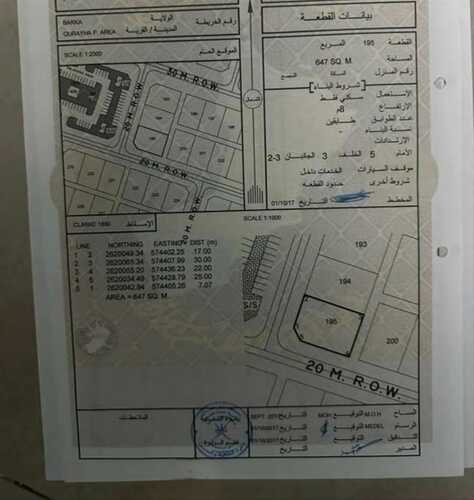 BARKA
الولاية
رقم الخريطة
QURAYHA P. AREA
المدينة / القرية
SCALE 1:2000
الموقع العام
30 M. R.O.W.
20 M. R.O.W.
بيانات القطعة
القطعة 195 المربع
المساحة 647 SQ. M.
رقم المنزل
شروط البناء
الإستعمال سكني فقط
الإرتفاع 8م
عدد الطوابق طابقين
نسبة البناء -
الإرتدادات
الأمام 5 الخلف 3 الجانبان 3-2
موقف السيارات الخدمات داخل
شروط أخرى حدود القطعة
المخطط التاريخ 01/10/17
الشمال
CLARKE 1880
الإسقاط
SCALE 1:1000
LINE NORTHING EASTING DIST (m)
1 2 2620049.34 574402.25 17.00
2 3 2620065.34 574407.99 30.00
3 4 2620055.20 574436.23 22.00
4 5 2620034.49 574428.79 25.00
5 1 2620042.94 574405.26 7.07
AREA = 647 SQ. M.
193
194
195
200
S/S
20 M. R.O.W.
الملاحظات
المساح M.O.H التوقيع MOH التاريخ
الرسام MEDEL التوقيع التاريخ
التدقيق التوقيع التاريخ
المدير التوقيع التاريخ